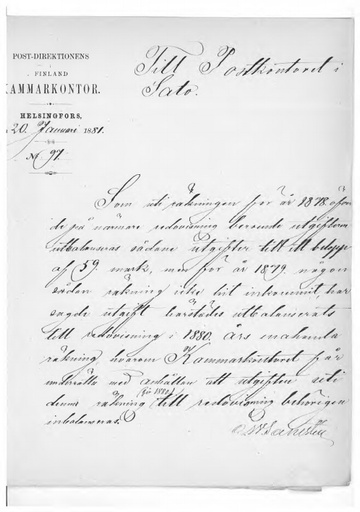 POST-DIREKTIONENS
I FINLAND
KAMMARKONTOR.
HELSINGFORS,
20 Januari 1881.
No 97.
Till Postkontoret i
Sato.
Som uti räkningen för år 1878
de på närmare redovisning beroende utgifterna
utbalanseras sådane utgifter till ett belopp
af 59 mark, men för år 1879 någon
sådan räkning icke hit inkommit, har
sagde utgift härstädes utbalanserats
till redovisning i 1880 års
räkning, hvarom Kammarkontoret får
med anhållan att utgiften uti
denna räkning (för 1880) till redovisning behörigen
inbalanseras.